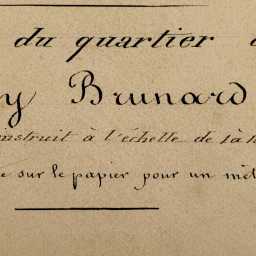 du quartier
y Brunard
nstruit à l'échelle de 1 à 1
e sur le papier pour un mèt